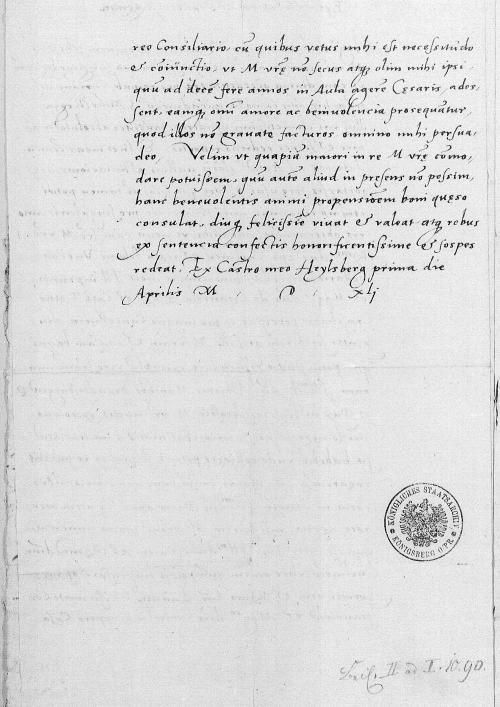 reo Consiliario, cũ quibus vetus mihi est necessitudo
& coniunctio, vt M vrẽ nõ secus atq; olim mihi ipsi
quũ ad decẽ fere annos in Aula agerẽ Cęsaris, ades
sent, eamq; omi amore ac beniuolencia prosequãtur,
quod illos nõ grauate facturos omnino mihi persua,
deo. Velim vt quapiã maiori in re M vrẽ como,
dare potuissem, quũ autẽ aliud in presens nõ possim,
hanc beneuolentis animi propensionem boni quęso
consulat, diuq; felicissie viuat & valeat atq; rebus
ex sentencia confectis honorificentissime & sospes
redeat. Ex Castro meo Heylsberg prima die
Aprilis M D xlj
KÖNIGLICHES STAATSARCHIV
KÖNIGSBERG O/PR.
II ad I. 10. 90.